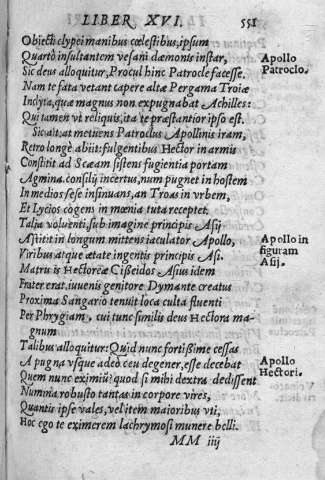 LIBER XVI. 551
Obiecti clypei manibus cœlestibus, ipsum
Quartò insultantem vesani dæmonis instar,
Sic deus alloquitur, Procul hinc Patrocle facesse.
Apollo
Patroclo.
Nam te fata vetant capere altæ Pergama Troiæ
Inclyta, quæ magnus non expugnabat Achilles:
Qui tamen vt reliquis, ita te præstantior ipso est.
Sic ait: at metuens Patroclus Apollinis iram,
Retro longè abiit: fulgentibus Hector in armis
Constitit ad Scæam sistens fugientia portam
Agmina. consilij incertus, num pugnet in hostem
In medios sese insinuans, an Troas in vrbem,
Et Lycios cogens in mœnia tuta receptet.
Talia voluenti, sub imagine principis Asij
Astitit in longum mittens iaculator Apollo,
Apollo in
figuram
Asij.
Viribus atque ætate ingentis principis Asi.
Matris is Hectoreæ Cißeidos Asius idem
Frater erat. iuuenis genitore Dymante creatus
Proxima Sangario tenuit loca culta fluenti
Per Phrygiam, cui tunc similis deus Hectora ma-
gnum
Talibus alloquitur: Quid nunc fortißime cessas
A pugna vsque adeò ceu degener, esse decebat
Apollo
Hectori.
Quem nunc eximiũ? quod si mihi dextra dedissent
Numina robusto tantas in corpore vires,
Quantis ipse vales, vel item maioribus vti,
Hoc ego te eximerem lachrymosi munere belli.
MM iiij